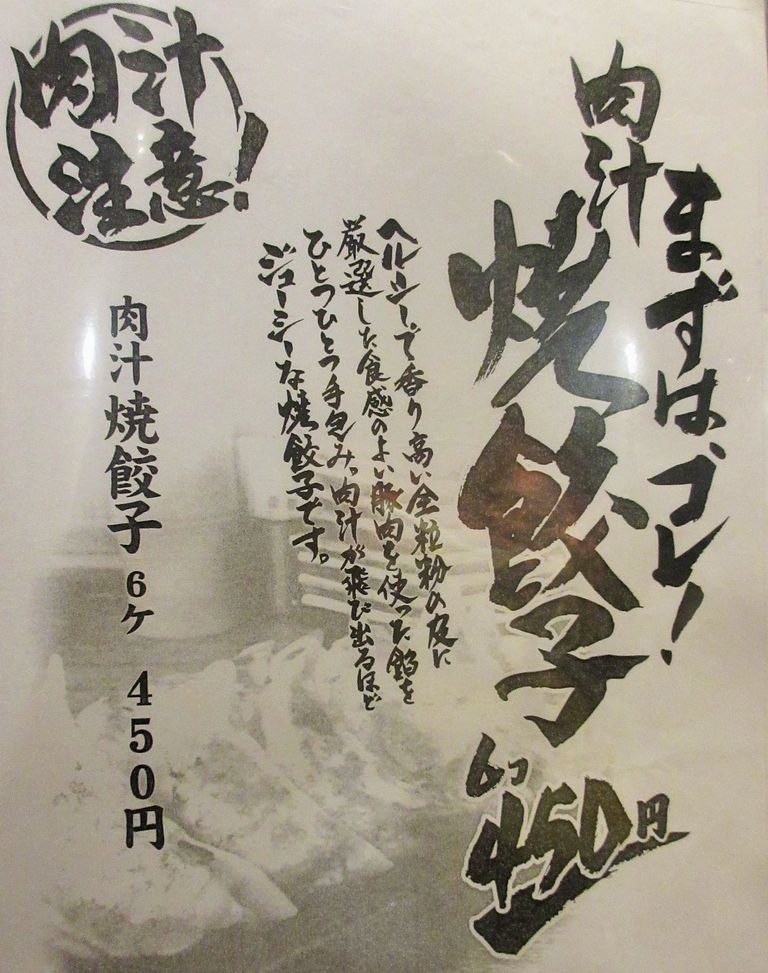 まずは、コレ!
肉汁
焼餃子
6つ
450円
ヘルシーで香り高い全粒粉の皮に
厳選した食感のよい豚肉を使った餡を
ひとつひとつ手包み。肉汁が飛び出るほど
ジューシーな焼餃子です。
肉汁
注意!
肉汁焼餃子 6ケ 450円